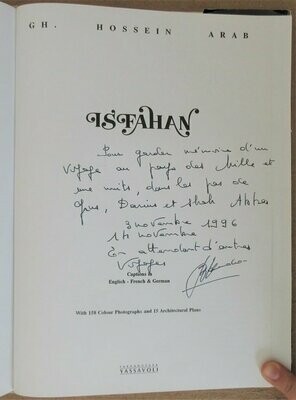 GH. HOSSEIN ARAB
ISFAHAN
Pour garder mémoire d'un
voyage au pays des Mille et
une nuits, dans les pas de
Cyrus, Darius et Shah Abbas
3 novembre 1996
14 novembre
En attendant d'autres
voyages
Captions in
English - French & German
With 158 Colour Photographs and 15 Architectural Plans
YASSAVOLI